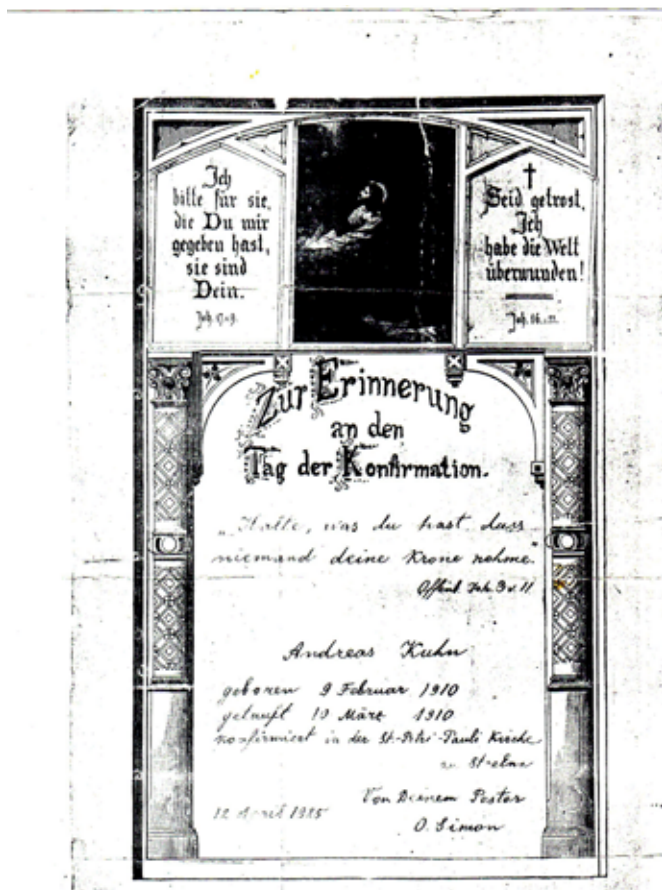 Ich
bitte für sie,
die Du mir
gegeben hast,
sie sind
Dein.
Joh. 17. 9.
Seid getrost,
Ich
habe die Welt
überwunden!
Joh. 16.
Zur Erinnerung
an den
Tag der Konfirmation.
„Halte, was du hast, dass
niemand deine Krone nehme."
Offenb. Joh. 3 v. 11
Andreas Kuhn
geboren 9 Februar 1910
getauft 19 März 1910
konfirmiert in der St.-Petri-Pauli Kirche
Von Deinem Pastor
12 April
O. Simon